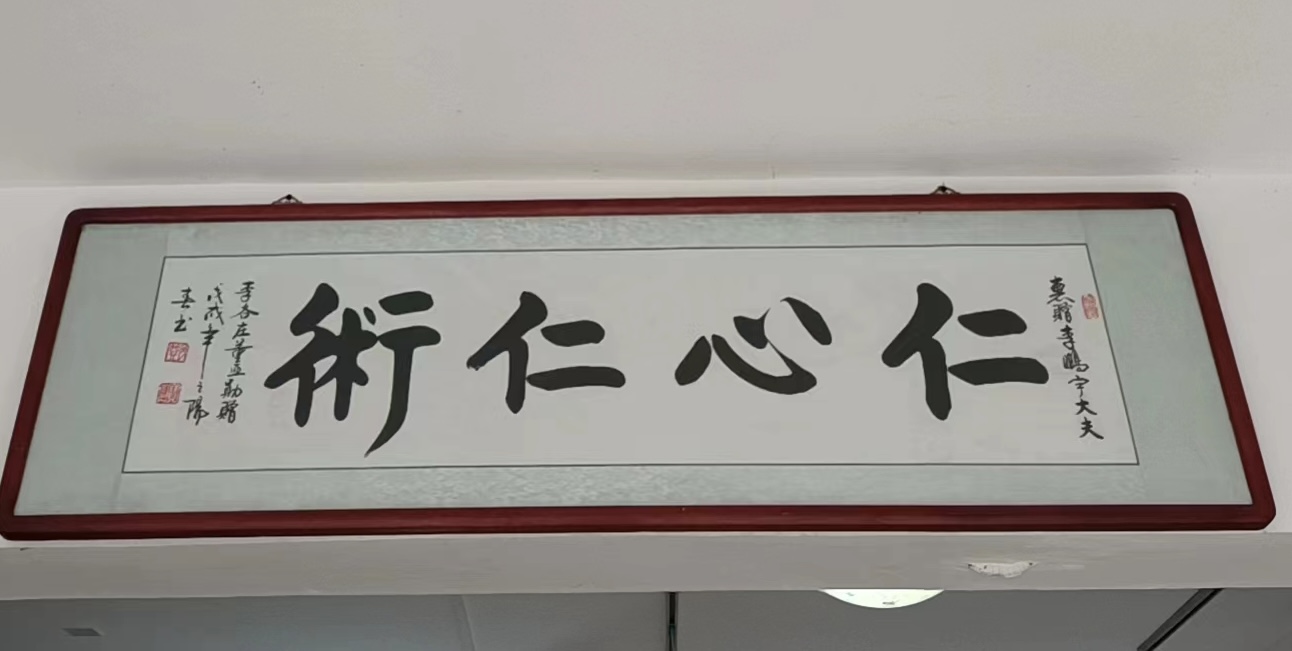 惠贈李鵬宇大夫
仁心仁術
李各庄董孟勋贈
戊戌年之陽
春书